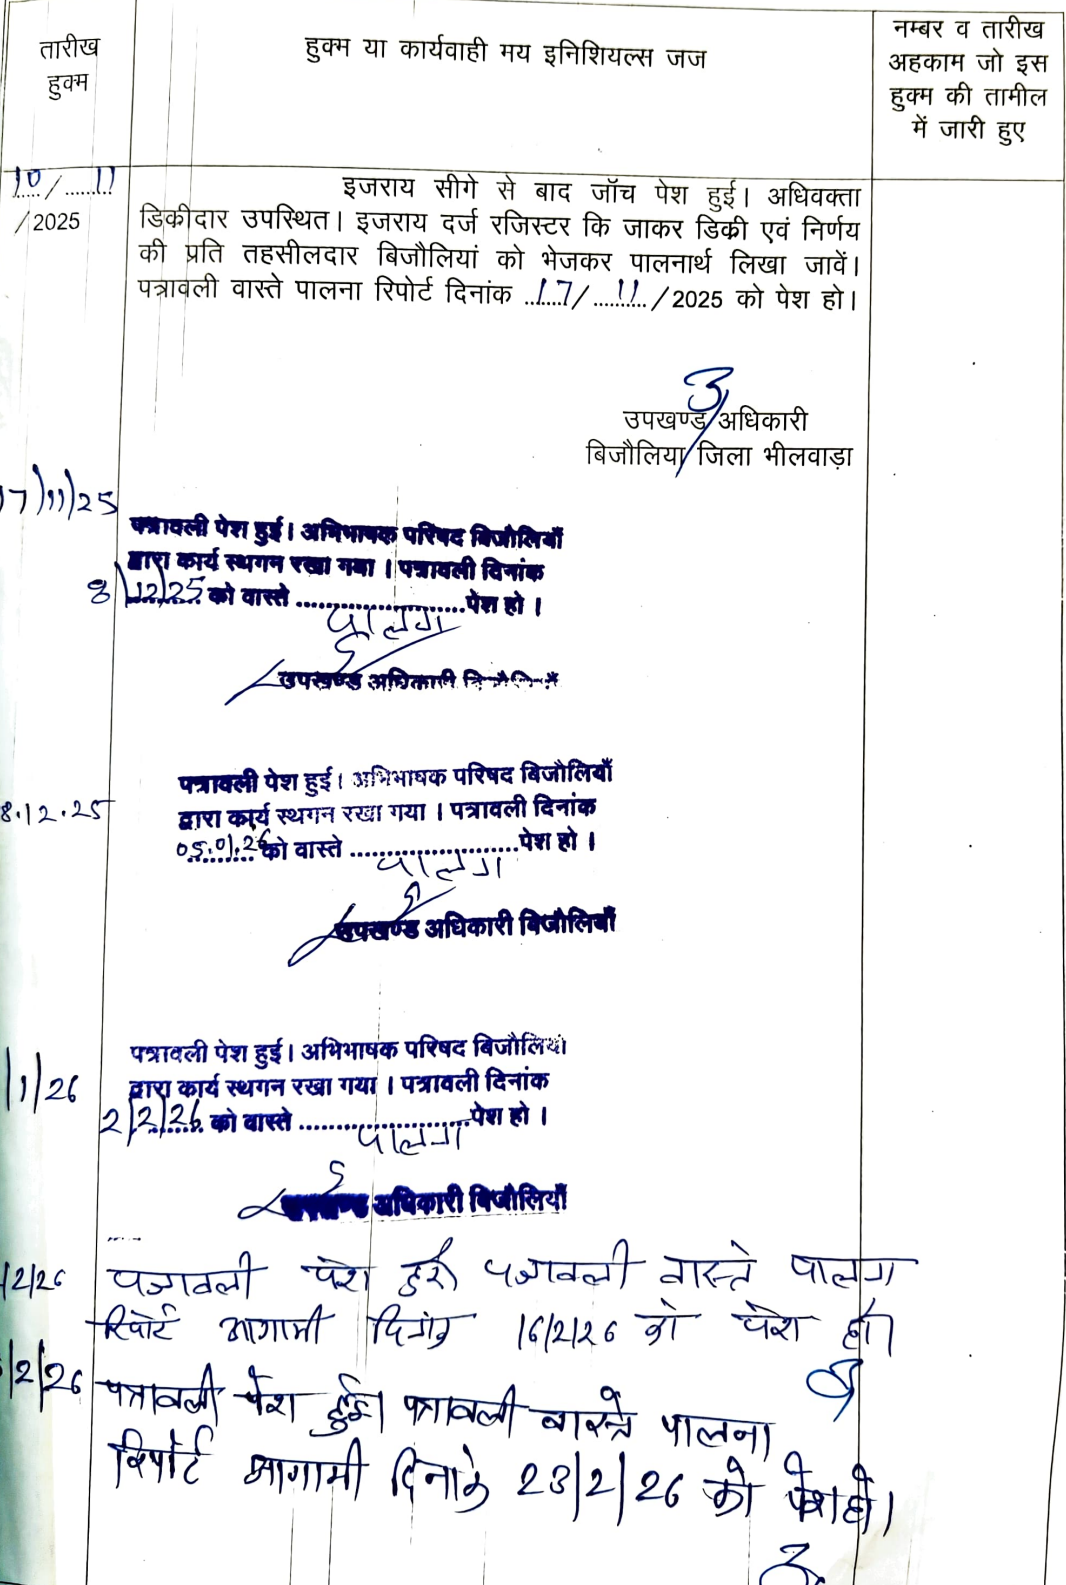 तारीख
हुक्म
हुक्म या कार्यवाही मय इनिशियल्स जज
नम्बर व तारीख
अहकाम जो इस
हुक्म की तामील
में जारी हुए
10/11
/2025
इजराय सीगे से बाद जॉच पेश हुई। अधिवक्ता
डिकीदार उपस्थित। इजराय दर्ज रजिस्टर कि जाकर डिकी एवं निर्णय
की प्रति तहसीलदार बिजौलियां को भेजकर पालनार्थ लिखा जावें।
पत्रावली वास्ते पालना रिपोर्ट दिनांक 17/11/2025 को पेश हो।
उपखण्ड अधिकारी
बिजौलिया जिला भीलवाड़ा
17/11/25
पत्रावली पेश हुई। अभिभाषक परिषद बिजौलियाँ
द्वारा कार्य स्थगन रखा गया। पत्रावली दिनांक
8/12/25 को वास्ते ........................पेश हो।
पालना
उपखण्ड अधिकारी बिजौलियाँ
8.12.25
पत्रावली पेश हुई। अभिभाषक परिषद बिजौलियाँ
द्वारा कार्य स्थगन रखा गया। पत्रावली दिनांक
05.01.26 को वास्ते ........................पेश हो।
पालना
उपखण्ड अधिकारी बिजौलियाँ
/1/26
पत्रावली पेश हुई। अभिभाषक परिषद बिजौलियां
द्वारा कार्य स्थगन रखा गया। पत्रावली दिनांक
2/2/26 को वास्ते ........................पेश हो।
पालना
उपखण्ड अधिकारी बिजौलियाँ
/2/26
पत्रावली पेश हुई पत्रावली वास्ते पालना
रिपोर्ट आगामी दिनांक 16/2/26 को पेश हो।
/2/26
पत्रावली पेश हुई। पत्रावली वास्ते पालना
रिपोर्ट आगामी दिनांक 23/2/26 को पेश हो।